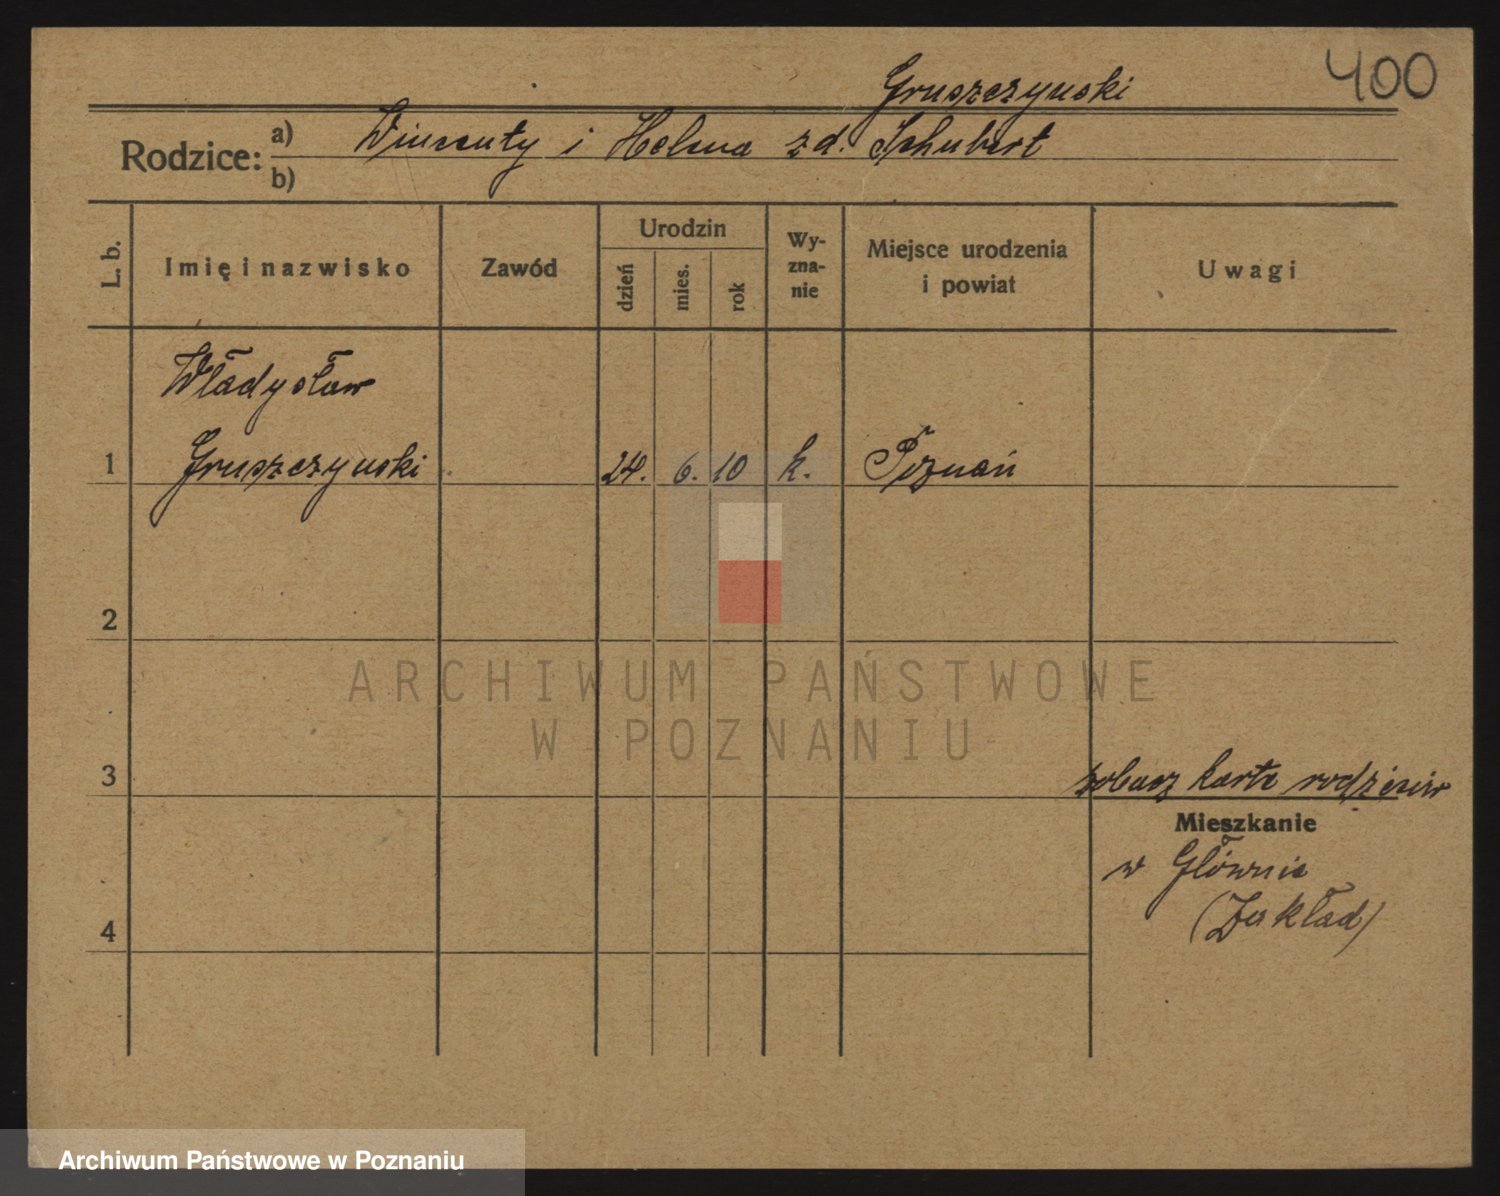 400
Gruszczynski
Rodzice: a) Wincenty i Helena zd. Schubert
b)
L. b.
Imię i nazwisko
Zawód
Urodzin
dzień
mies.
rok
Wy-
zna-
nie
Miejsce urodzenia
i powiat
Uwagi
Władysław
1 Gruszczynski 24. 6. 10 k. Poznań
2
ARCHIWUM PAŃSTWOWE
W POZNANIU
3
zobacz kartę rodziców
Mieszkanie
w Głównie
(Zakład)
4
Archiwum Państwowe w Poznaniu